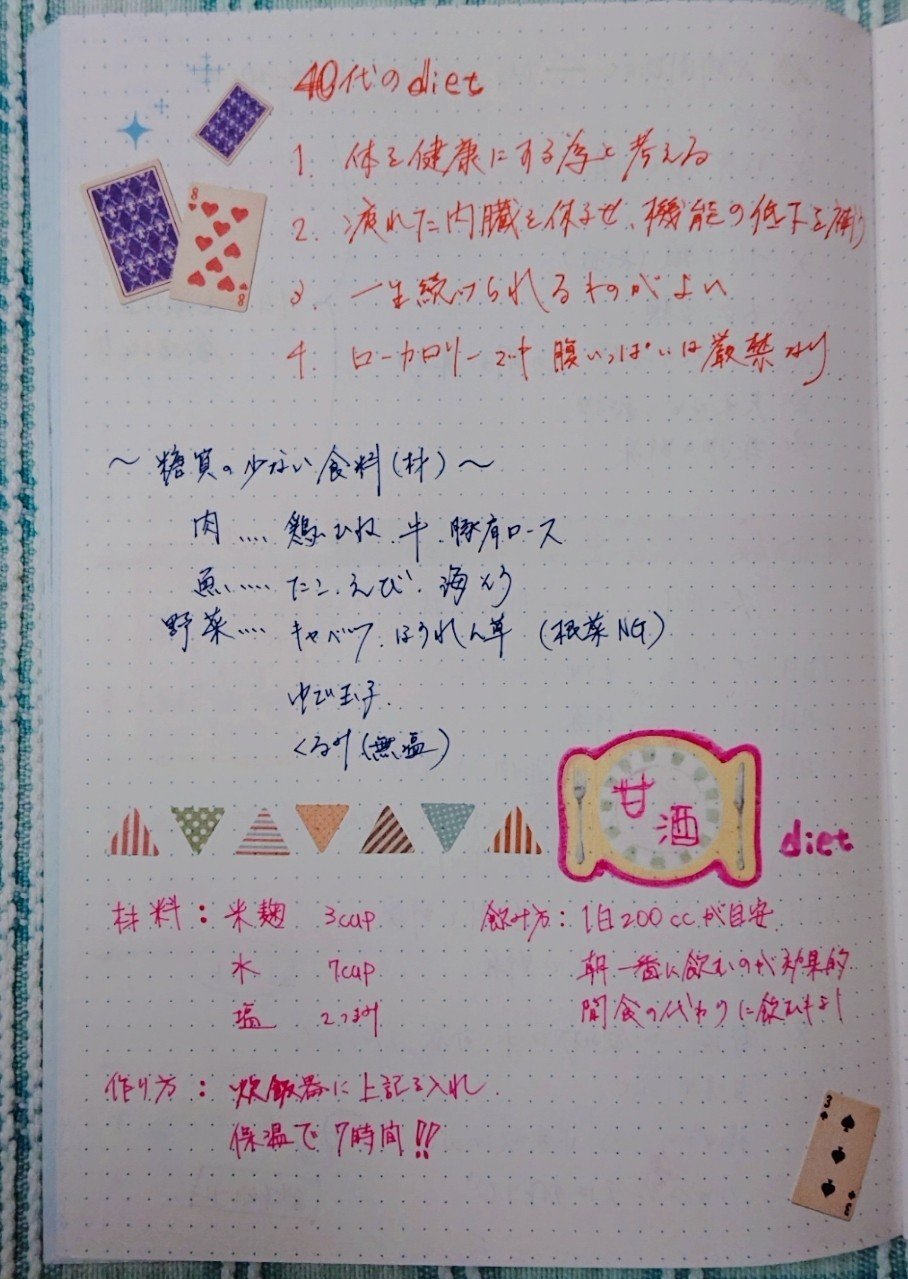 40代のdiet
1. 体を健康にする為と考える
2. 疲れた内臓を休ませ、機能の低下を補う
3 一生続けられるものがよい
4. ローカロリーでも腹いっぱいは厳禁なり
～糖質の少ない食料(材)～
肉....鶏むね.牛.豚肩ロース
魚.....たこ.えび.海そう
野菜....キャベツ.ほうれん草(根菜NG)
ゆで玉子.
くるみ(無塩)
甘酒
diet
材料:米麹 3cup
水 7cup
塩 2つまみ
飲み方:1日200ccが目安
朝一番に飲むのが効果的
間食の代わりに飲むもよし
作り方:炊飯器に上記を入れ
保温で7時間!!
8
8
3
3